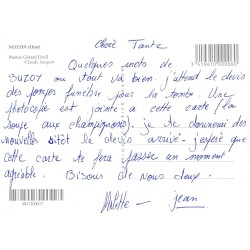 NOYON (Oise)
Chère Tante
Quelques mots de
SUZOY ou tout va bien. j'attend le devis
des pompes funèbre pour la tombe. Une
photocopie est jointe a cette carte (la
soupe aux champignons). je te donnerai des
nouvelles sitôt le devis arrivé. j'espère que
cette carte te fera passée un moment
agréable. Bisous de nous deux.
Arlette – jean